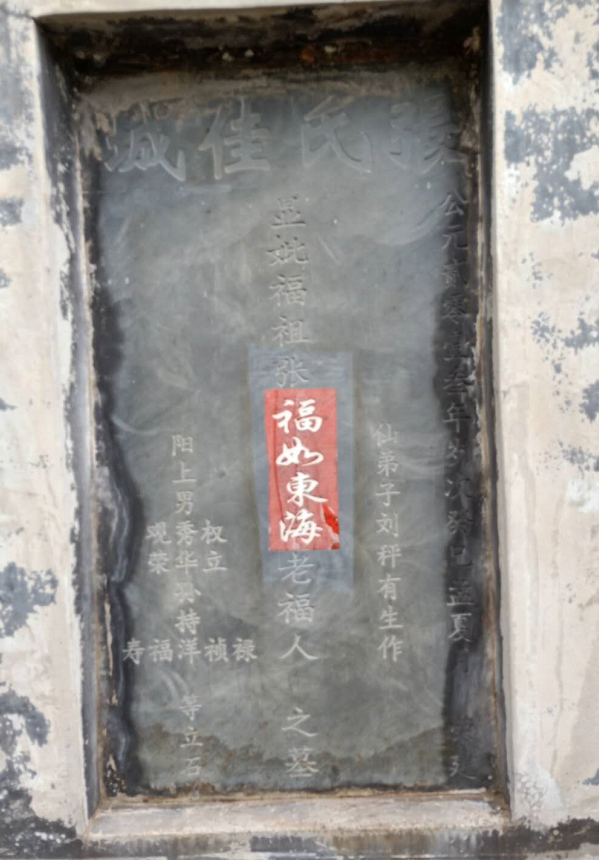 張氏佳城
公元贰零壹叁年岁次癸巳孟夏
仙弟子刘秤有生作
显妣福祖张
福如東海
老福人之墓
阳上男秀华
权立
观荣
孙持洋
禄祯
福寿
等立石